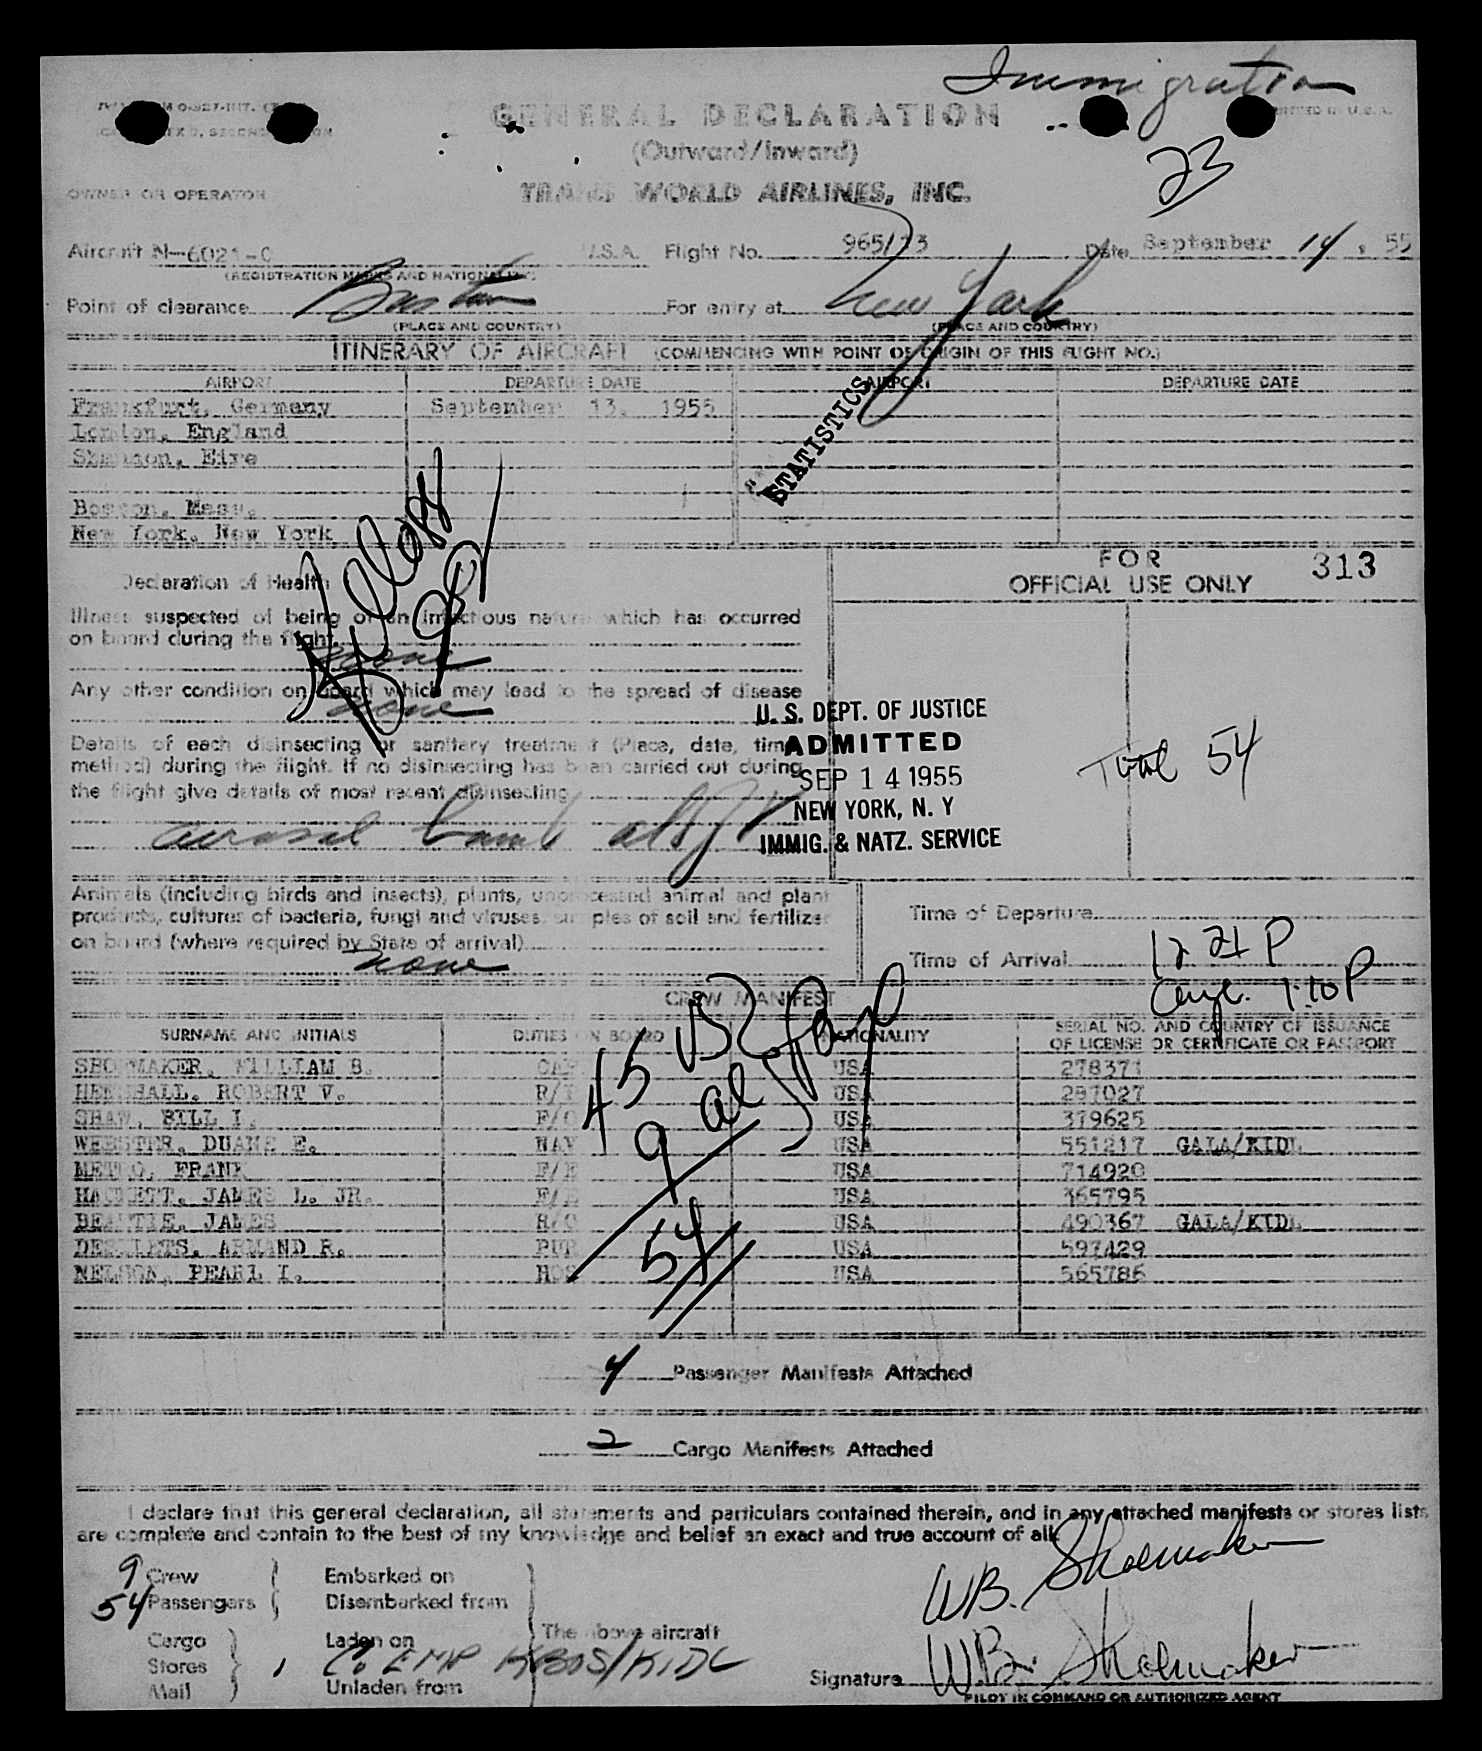 Immigration
GENERAL DECLARATION
(Outward/Inward)
23
OWNER OR OPERATOR
TRANS WORLD AIRLINES, INC.
Aircraft N-6021-C U.S.A. Flight No. 965/13 Date September 14, 55
(REGISTRATION MARKS AND NATIONALITY)
Point of clearance Boston For entry at New York
(PLACE AND COUNTRY) (PLACE AND COUNTRY)
ITINERARY OF AIRCRAFT (COMMENCING WITH POINT OF ORIGIN OF THIS FLIGHT NO.)
AIRPORT DEPARTURE DATE AIRPORT DEPARTURE DATE
Frankfurt, Germany September 13, 1955
London, England
Shannon, Eire
STATISTICS
Boston, Mass.
New York, New York
Declaration of Health
FOR
OFFICIAL USE ONLY 313
Illness suspected of being of an infectious nature which has occurred
on board during the flight.
none
Any other condition on board which may lead to the spread of disease
none
Details of each disinsecting or sanitary treatment (Place, date, time,
method) during the flight. If no disinsecting has been carried out during
the flight give details of most recent disinsecting
aerosol bomb
U. S. DEPT. OF JUSTICE
ADMITTED
SEP 14 1955
NEW YORK, N. Y
IMMIG. & NATZ. SERVICE
Total 54
Animals (including birds and insects), plants, unprocessed animal and plant
products, cultures of bacteria, fungi and viruses, samples of soil and fertilizer
on board (where required by State of arrival)
none
Time of Departure
Time of Arrival 12 21 P
1:10 P
CREW MANIFEST
SURNAME AND INITIALS DUTIES ON BOARD NATIONALITY SERIAL NO. AND COUNTRY OF ISSUANCE
OF LICENSE OR CERTIFICATE OR PASSPORT
SHOEMAKER, WILLIAM B. CAP USA 278371
HENSHALL, ROBERT V. USA 287027
SHAW, BILL I. F/O USA 379625
WEBSTER, DUANE E. NAV USA 551217 GALA/KIDL
FRANK F/E USA 714920
HACKETT, JAMES L. JR. F/E USA 365795
BEATTIE, JAMES R/O USA 490367 GALA/KIDL
ARMAND R. PUR USA 597429
NELSON, PEARL I. HOS USA 565786
45 USC
9 al
54
4 Passenger Manifests Attached
2 Cargo Manifests Attached
I declare that this general declaration, all statements and particulars contained therein, and in any attached manifests or stores lists
are complete and contain to the best of my knowledge and belief an exact and true account of all
9 Crew Embarked on
54 Passengers Disembarked from
The above aircraft
Cargo Laden on
Stores
Mail Unladen from
KBOS/KIDL
W.B. Shoemaker
Signature W.B. Shoemaker
PILOT IN COMMAND OR AUTHORIZED AGENT